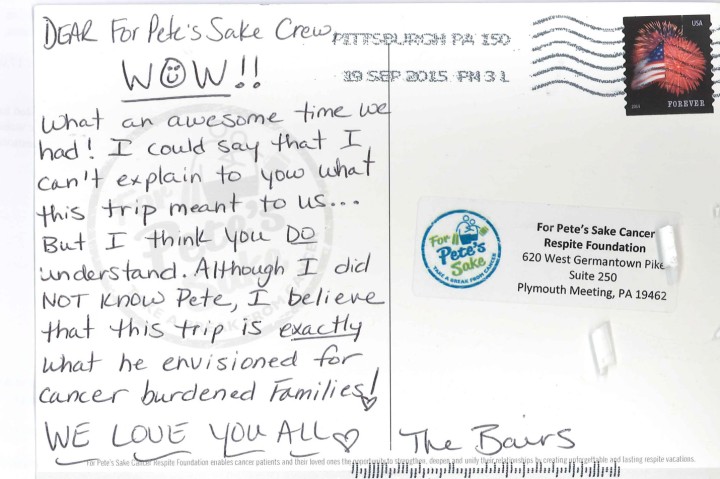 DEAR For Pete's Sake Crew,
WOW!!
What an awesome time we
had! I could say that I
can't explain to you what
this trip meant to us...
But I think you DO
understand. Although I did
NOT KNOW Pete, I believe
that this trip is exactly
what he envisioned for
cancer burdened Families!
WE LOVE YOU ALL
The Bairs
PITTSBURGH PA 150
19 SEP 2015 PM 3 L
USA
FOREVER
For
Pete's
Sake
TAKE A BREAK FROM CANCER
For Pete's Sake Cancer
Respite Foundation
620 West Germantown Pike
Suite 250
Plymouth Meeting, PA 19462
For Pete's Sake Cancer Respite Foundation enables cancer patients and their loved ones the opportunity to strengthen, deepen and unify their relationships by creating unforgettable and lasting respite vacations.